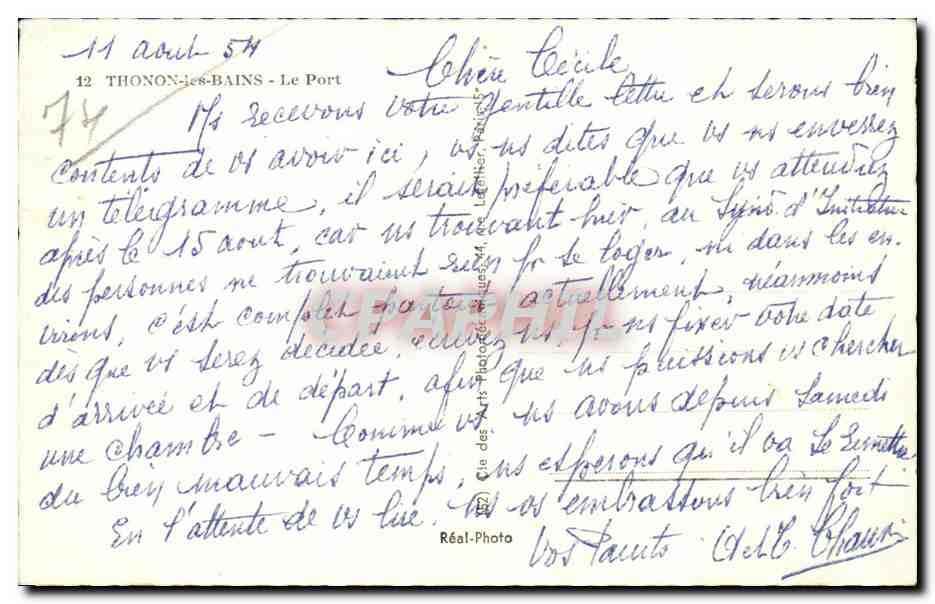 11 aout 54
Chère Cécile
12 THONON-les-BAINS - Le Port
74
Ns recevons votre gentille lettre et serons bien
contents de vs avoir ici, vs ns dites que vs ns enverrez
un télégramme, il serait préférable que vs attendiez
après le 15 aout, car ns trouvant hier, au Synd. d'Initiative
des personnes ne trouvaient rien pr se loger, ni dans les en-
virons, c'est complet partout actuellement, néanmoins
dès que vs serez décidée, écrivez ns, pr ns fixer votre date
d'arrivée et de départ, afin que ns puissions vs chercher
une chambre - Comme vs, ns avons depuis Samedi
du bien mauvais temps, ns espérons qu'il va se remettre
En l'attente de vs lire, ns vs embrassons bien fort
Vos
Cie des Arts Photomécaniques, 44, rue Letellier, Paris-15e
Réal-Photo
CPAPHIL